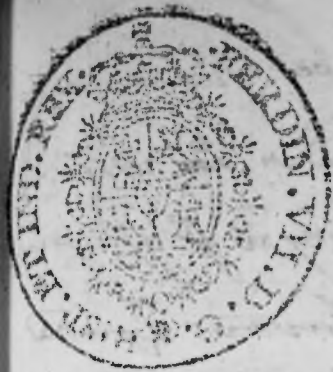 FERDIN · VII · D · G · HISP. ET IND. REX.